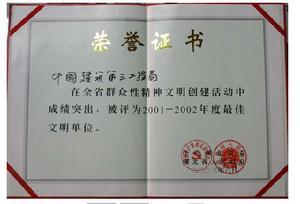 荣誉证书
中国建筑第三工程局
在全省群众性精神文明创建活动中
成绩突出，被评为2001—2002年度最佳
文明单位。